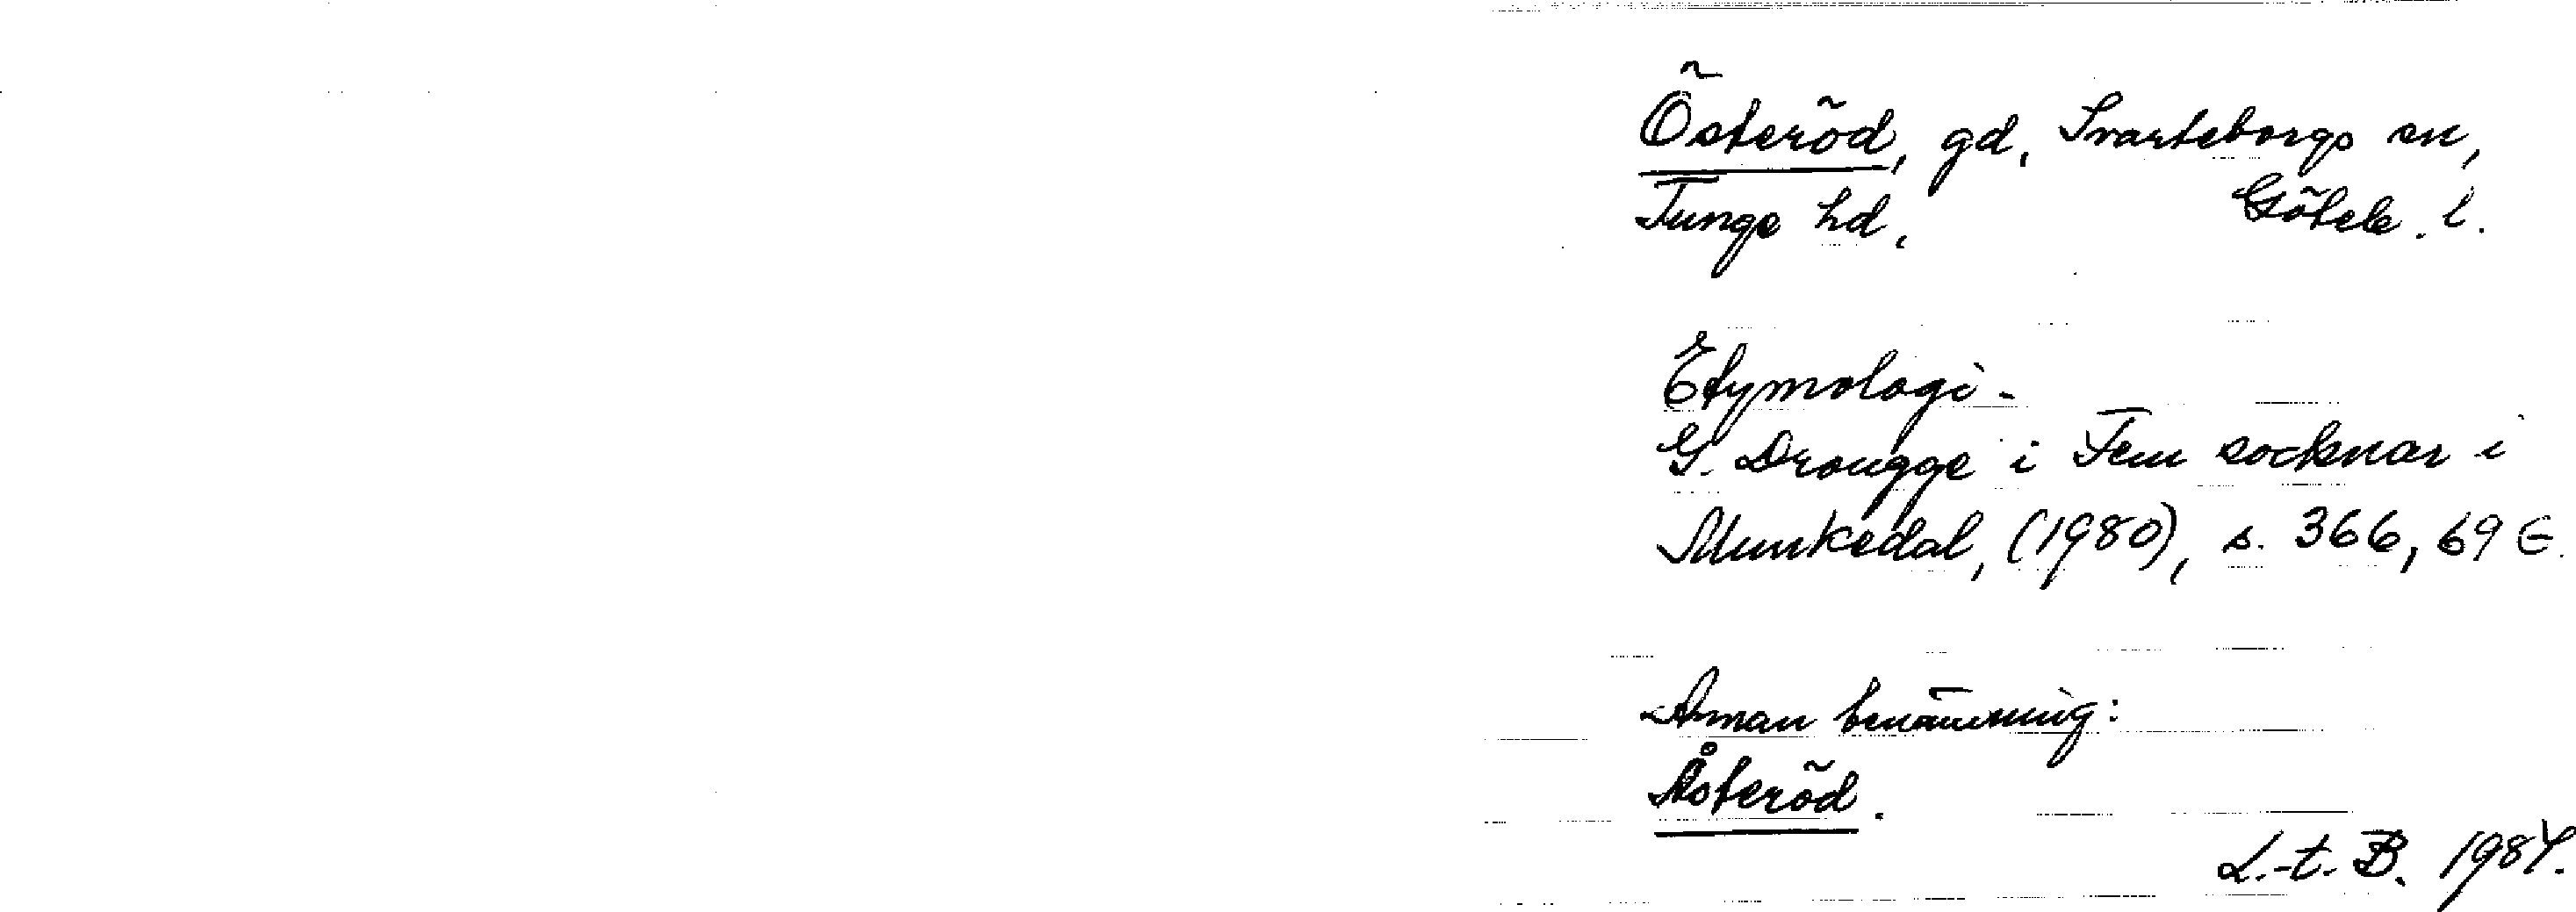 Österöd, gd, Svarteborgs sn,
Tunge hd, Göteb. l.
Etymologi.
G. Drougge i Fem socknar i
Munkedal, (1980), s. 366, 69 E.
Annan benämning:
Åsteröd.
L.-t. B. 1984.